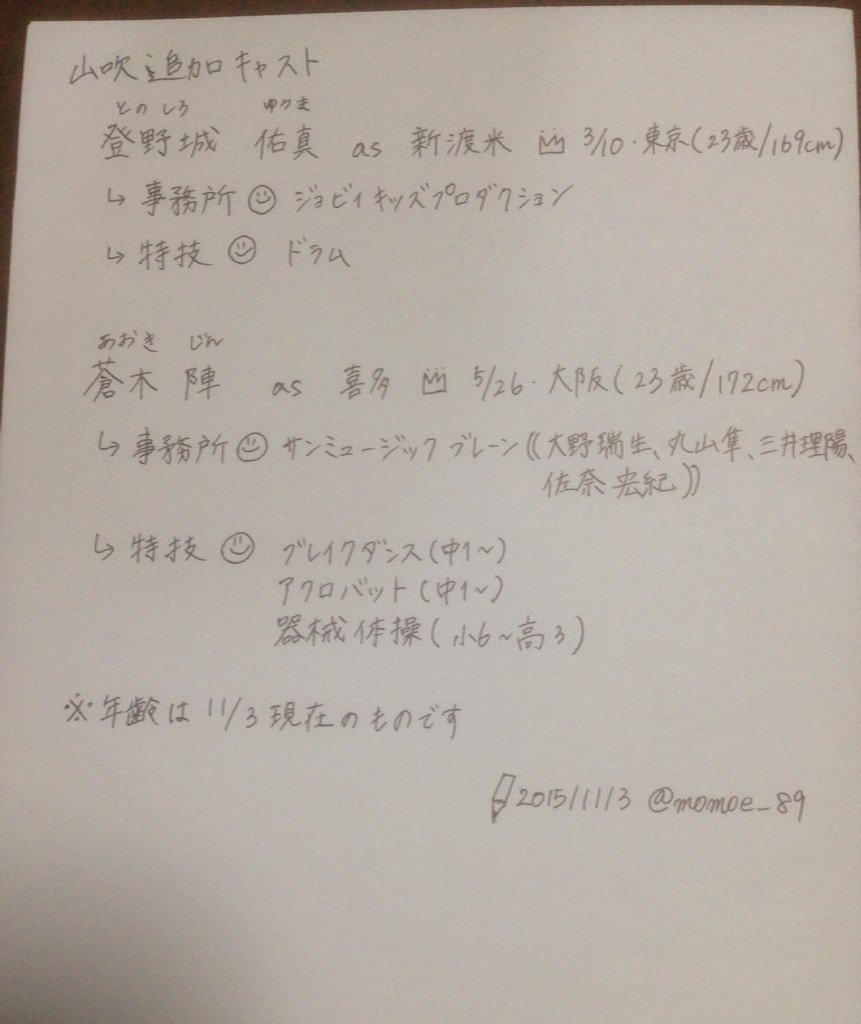 山吹追加キャスト
とのしろ ゆうま
登野城 佑真 as 新渡米 3/10・東京(23歳/169cm)
↳ 事務所 ジョビィキッズプロダクション
↳ 特技 ドラム
あおき じん
蒼木 陣 as 喜多 5/26・大阪(23歳/172cm)
↳ 事務所 サンミュージックブレーン((大野瑞生、丸山隼、三井理陽、
佐奈宏紀))
↳ 特技 ブレイクダンス(中1~)
アクロバット(中1~)
器械体操(小6~高3)
※年齢は11/3現在のものです
2015/11/3 @momoe_89